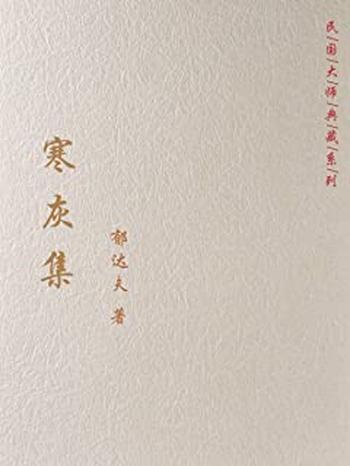 民国大师典藏系列
寒灰集
郁达夫 著